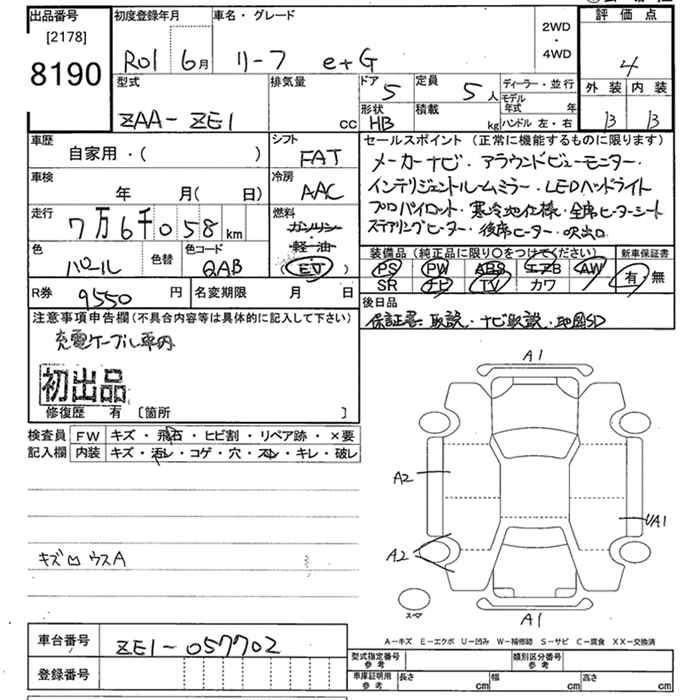 出品番号 初度登録年月 車名・グレード 2WD・4WD 評価点
[2178]
8190 R01 6月 リーフ e+G 4
型式 排気量 ドア 5 定員 5人 ディーラー・並行 外装 内装
モデル年式 年
ZAA-ZE1 cc 形状 HB 積載 kg ハンドル 左・右 B B
車歴 シフト セールスポイント (正常に機能するものに限ります)
自家用・( ) FAT メーカーナビ・アラウンドビューモニター・
車検 冷房 インテリジェントルームミラー・LEDヘッドライト
年 月( 日) AAC プロパイロット・寒冷地仕様・全席ヒーターシート
走行 燃料 ステアリングヒーター・後席ヒーター・吹出口
7万6千058km ガソリン
軽・油
色 色替 色コード (EV) 装備品 (純正品に限り○をつけてください) 新車保証書
パール QAB PS PW ABS エアB AW 有・無
R券 9550円 名変期限 月 日 SR ナビ TV カワ
注意事項申告欄 (不具合内容等は具体的に記入して下さい) 後日品
充電ケーブル車内 保証書・取説・ナビ取説・地図SD
初出品
修復歴 有 [箇所 ]
検査員 FW キズ・飛石・ヒビ割・リペア跡・×要
記入欄 内装 キズ・汚レ・コゲ・穴・スレ・キレ・破レ
A1
A2
UA1
A2
キズ ウスA
スマ
A1
A-キズ E-エクボ U-凹み W-補修跡 S-サビ C-腐食 XX-交換済
車台番号 ZE1-057702
型式指定番号 参考 類別区分番号 参考
登録番号 車庫証明用 参考 長さ cm 幅 cm 高さ cm